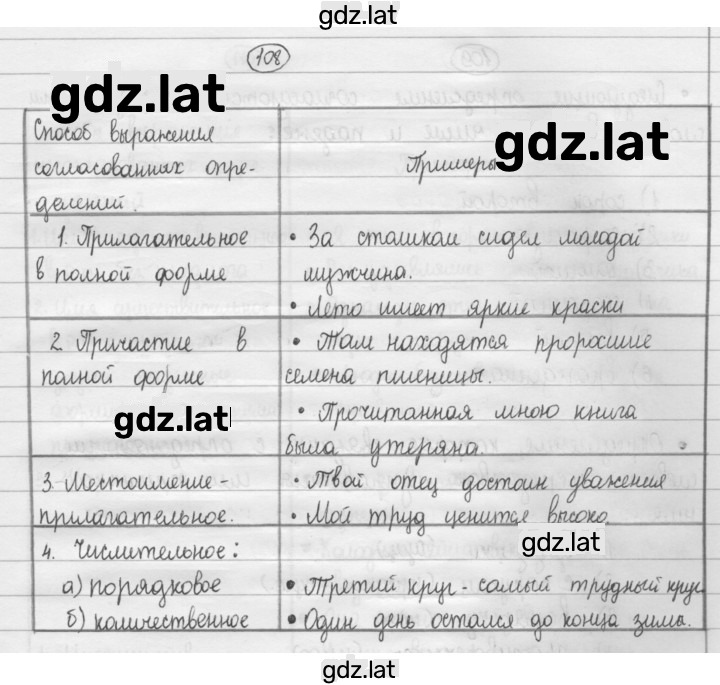 gdz.lat
108
gdz.lat
Способ выражения
согласованных опре-
делений.
Примеры
gdz.lat
1. Прилагательное
в полной форме
• За столиком сидел молодой
мужчина.
• Лето имеет яркие краски
2. Причастие в
полной форме
• Там находятся проросшие
семена пшеницы.
• Прочитанная мною книга
была утеряна.
gdz.lat
3. Местоимение-
прилагательное.
• Твой отец достоин уважения
• Мой труд ценится высоко
gdz.lat
4. Числительное:
а) порядковое
б) количественное
• Третий круг - самый трудный круг.
• Один день остался до конца зимы.
gdz.lat